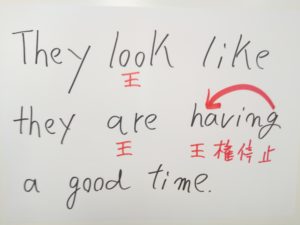 They look like
王
they are having
王 王権停止
a good time.